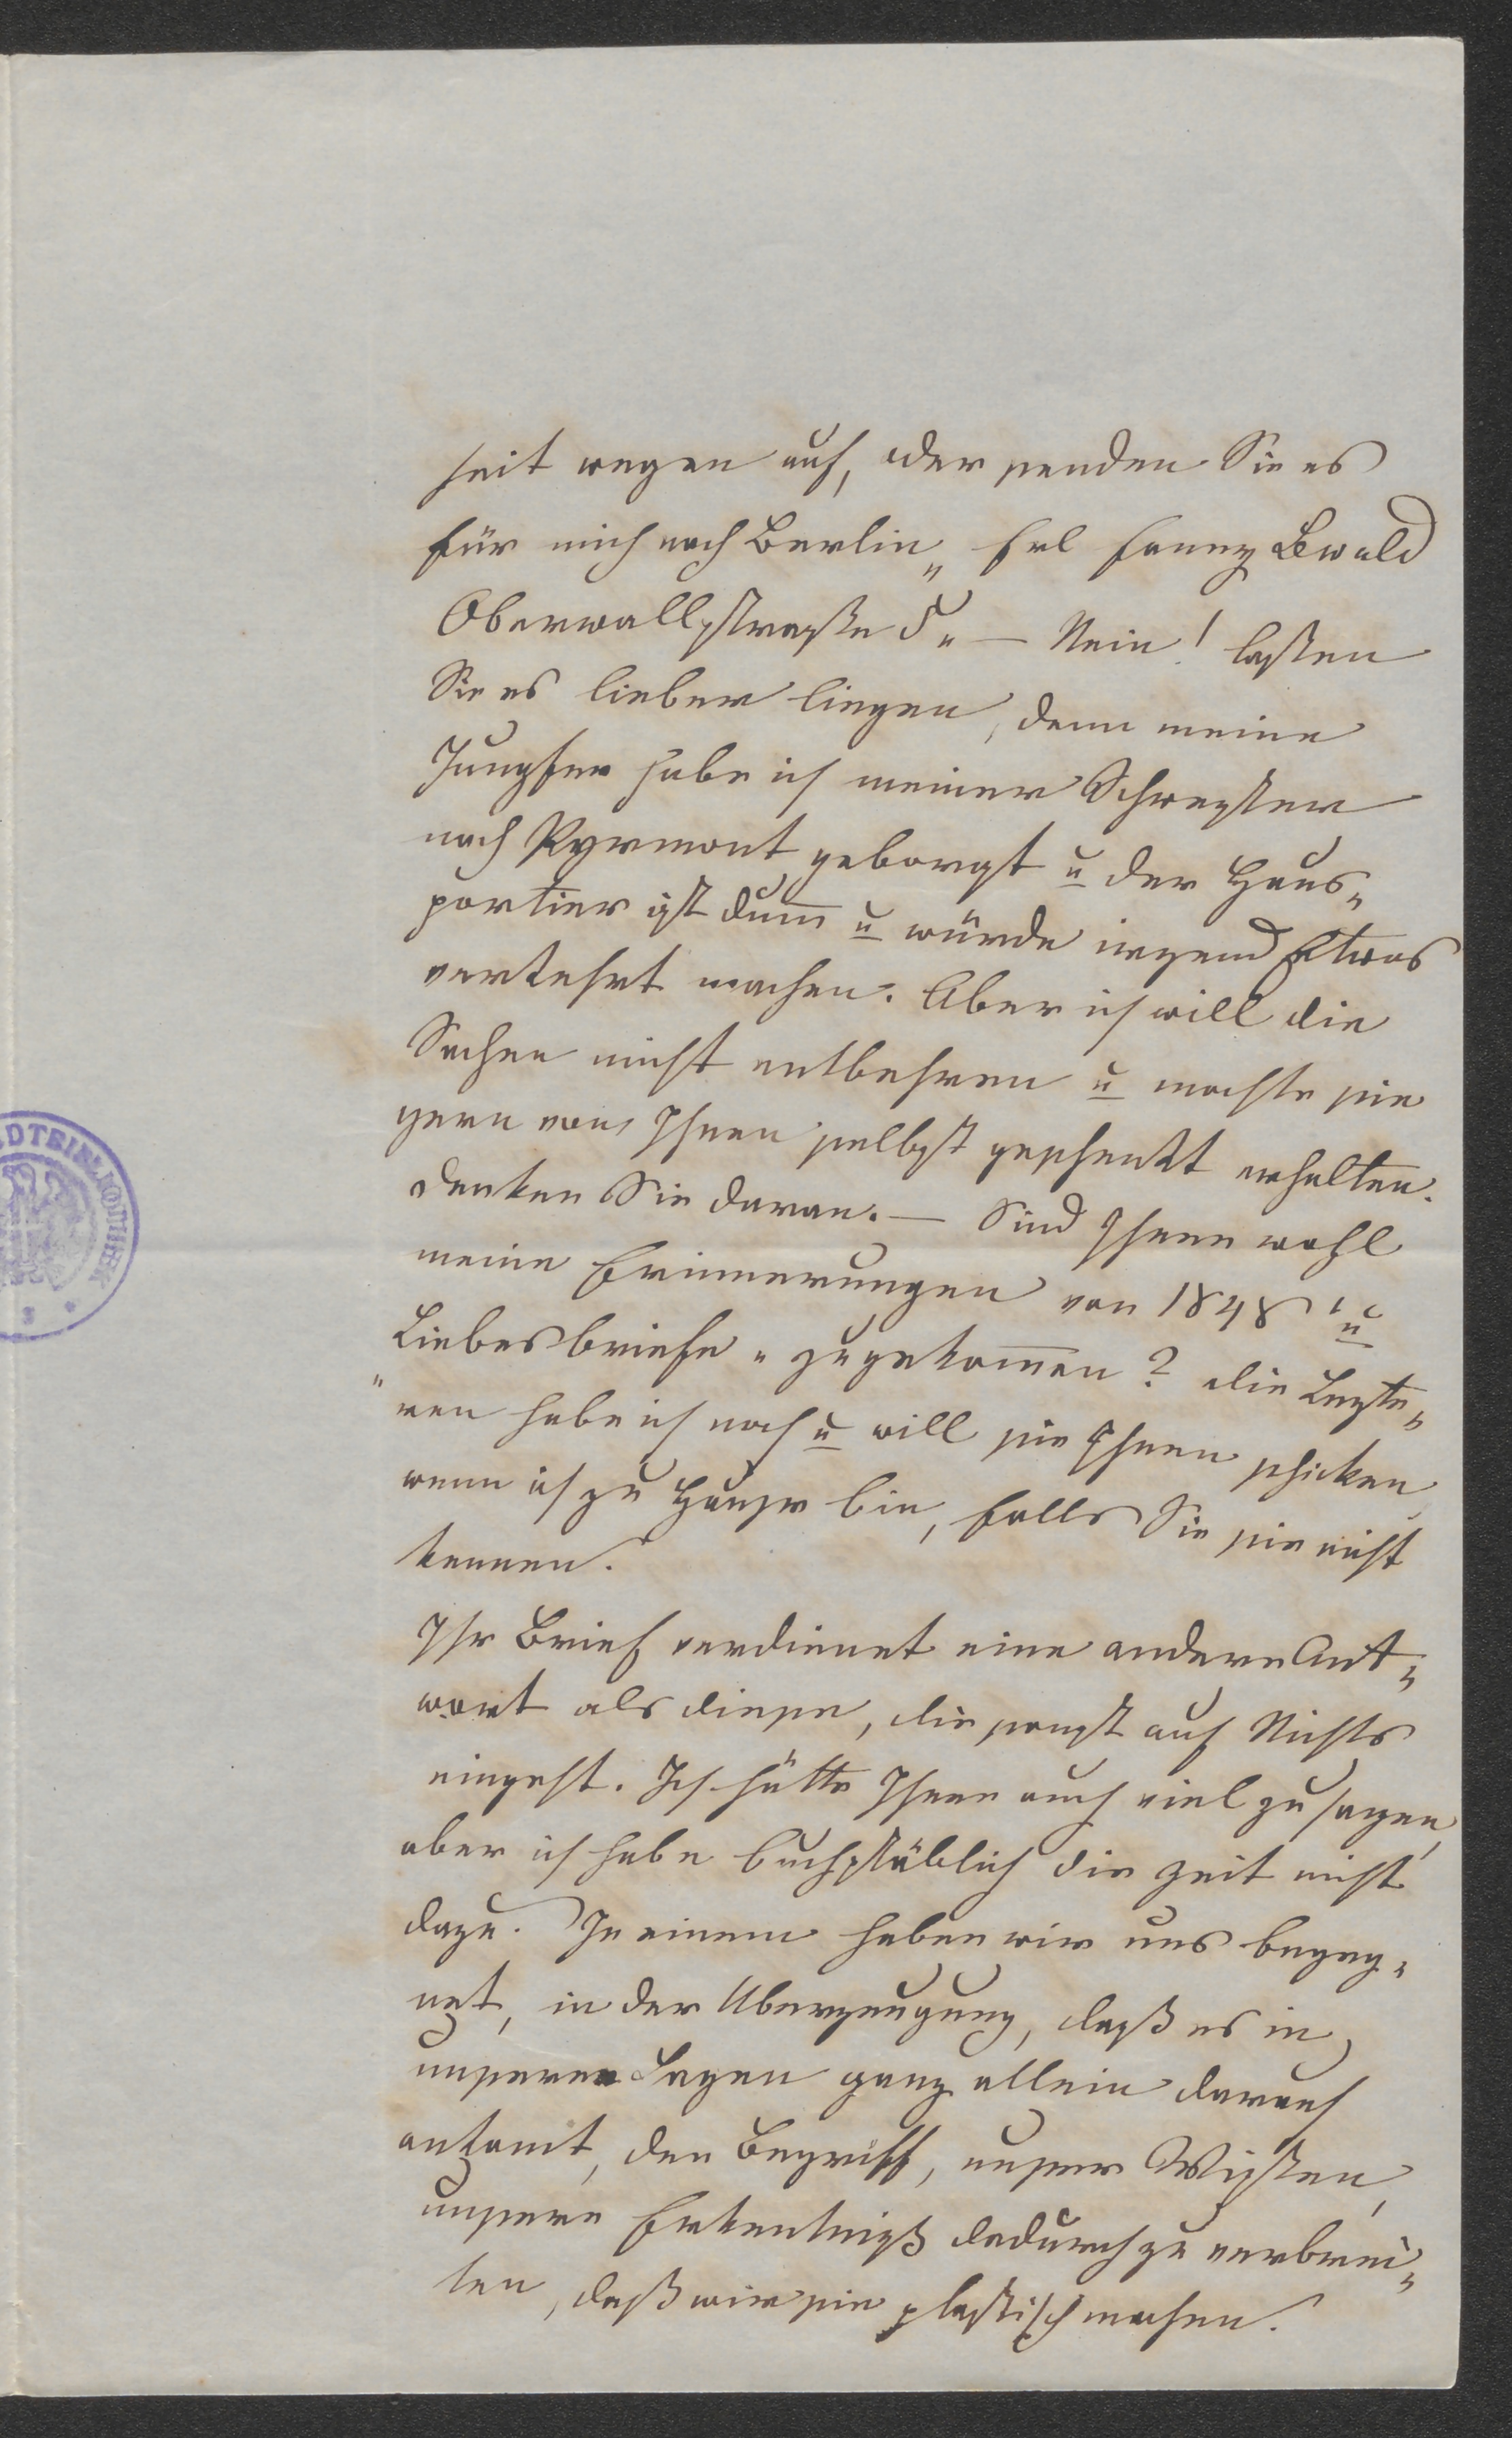 heit wegen auf, oder senden Sie es
für mich nach Berlin„ Frl Fanny Lewald
Oberwallstraße 5„ — Nein! laßen
Sie es lieber liegen, denn meine
Jungfer habe ich meiner Schwester
nach Pyrmont geborgt u der Haus„
portier ist dum̅ u würde irgend Etwas
verkehrt machen. Aber ich will die
Sachen nicht entbehren u mochte sie
gern von Ihnen selbst geschenkt erhalten.
denken Sie daran. — Sind Ihnen wohl
meine Erinnerungen von 1848 u
„Liebesbriefe„ zugekom̅en? die Lezte„
ren habe ich noch u will sie Ihnen schicken
wenn ich zu Hause bin, falls Sie sie nicht
kennen.
Ihr Brief verdienet eine andere Ant„
wort als diese, die sonst auf Nichts
eingeht. Ich hätte Ihnen auch viel zu sagen,
aber ich habe buchstäblich die Zeit nicht
dazu. In einem haben wir uns begeg„
net, in der Uberzeugung, daß es in
unseren Tagen ganz allein darauf
ankom̅t, den Begriff, unser Wißen,
unsere Erkentniß dadurch zu verbrei„
ten, daß wir sie plastisch machen.
DTBIBLIOTHEK